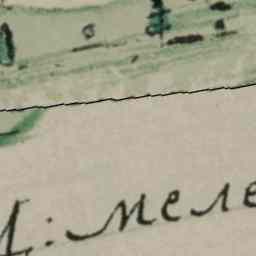 М: меле